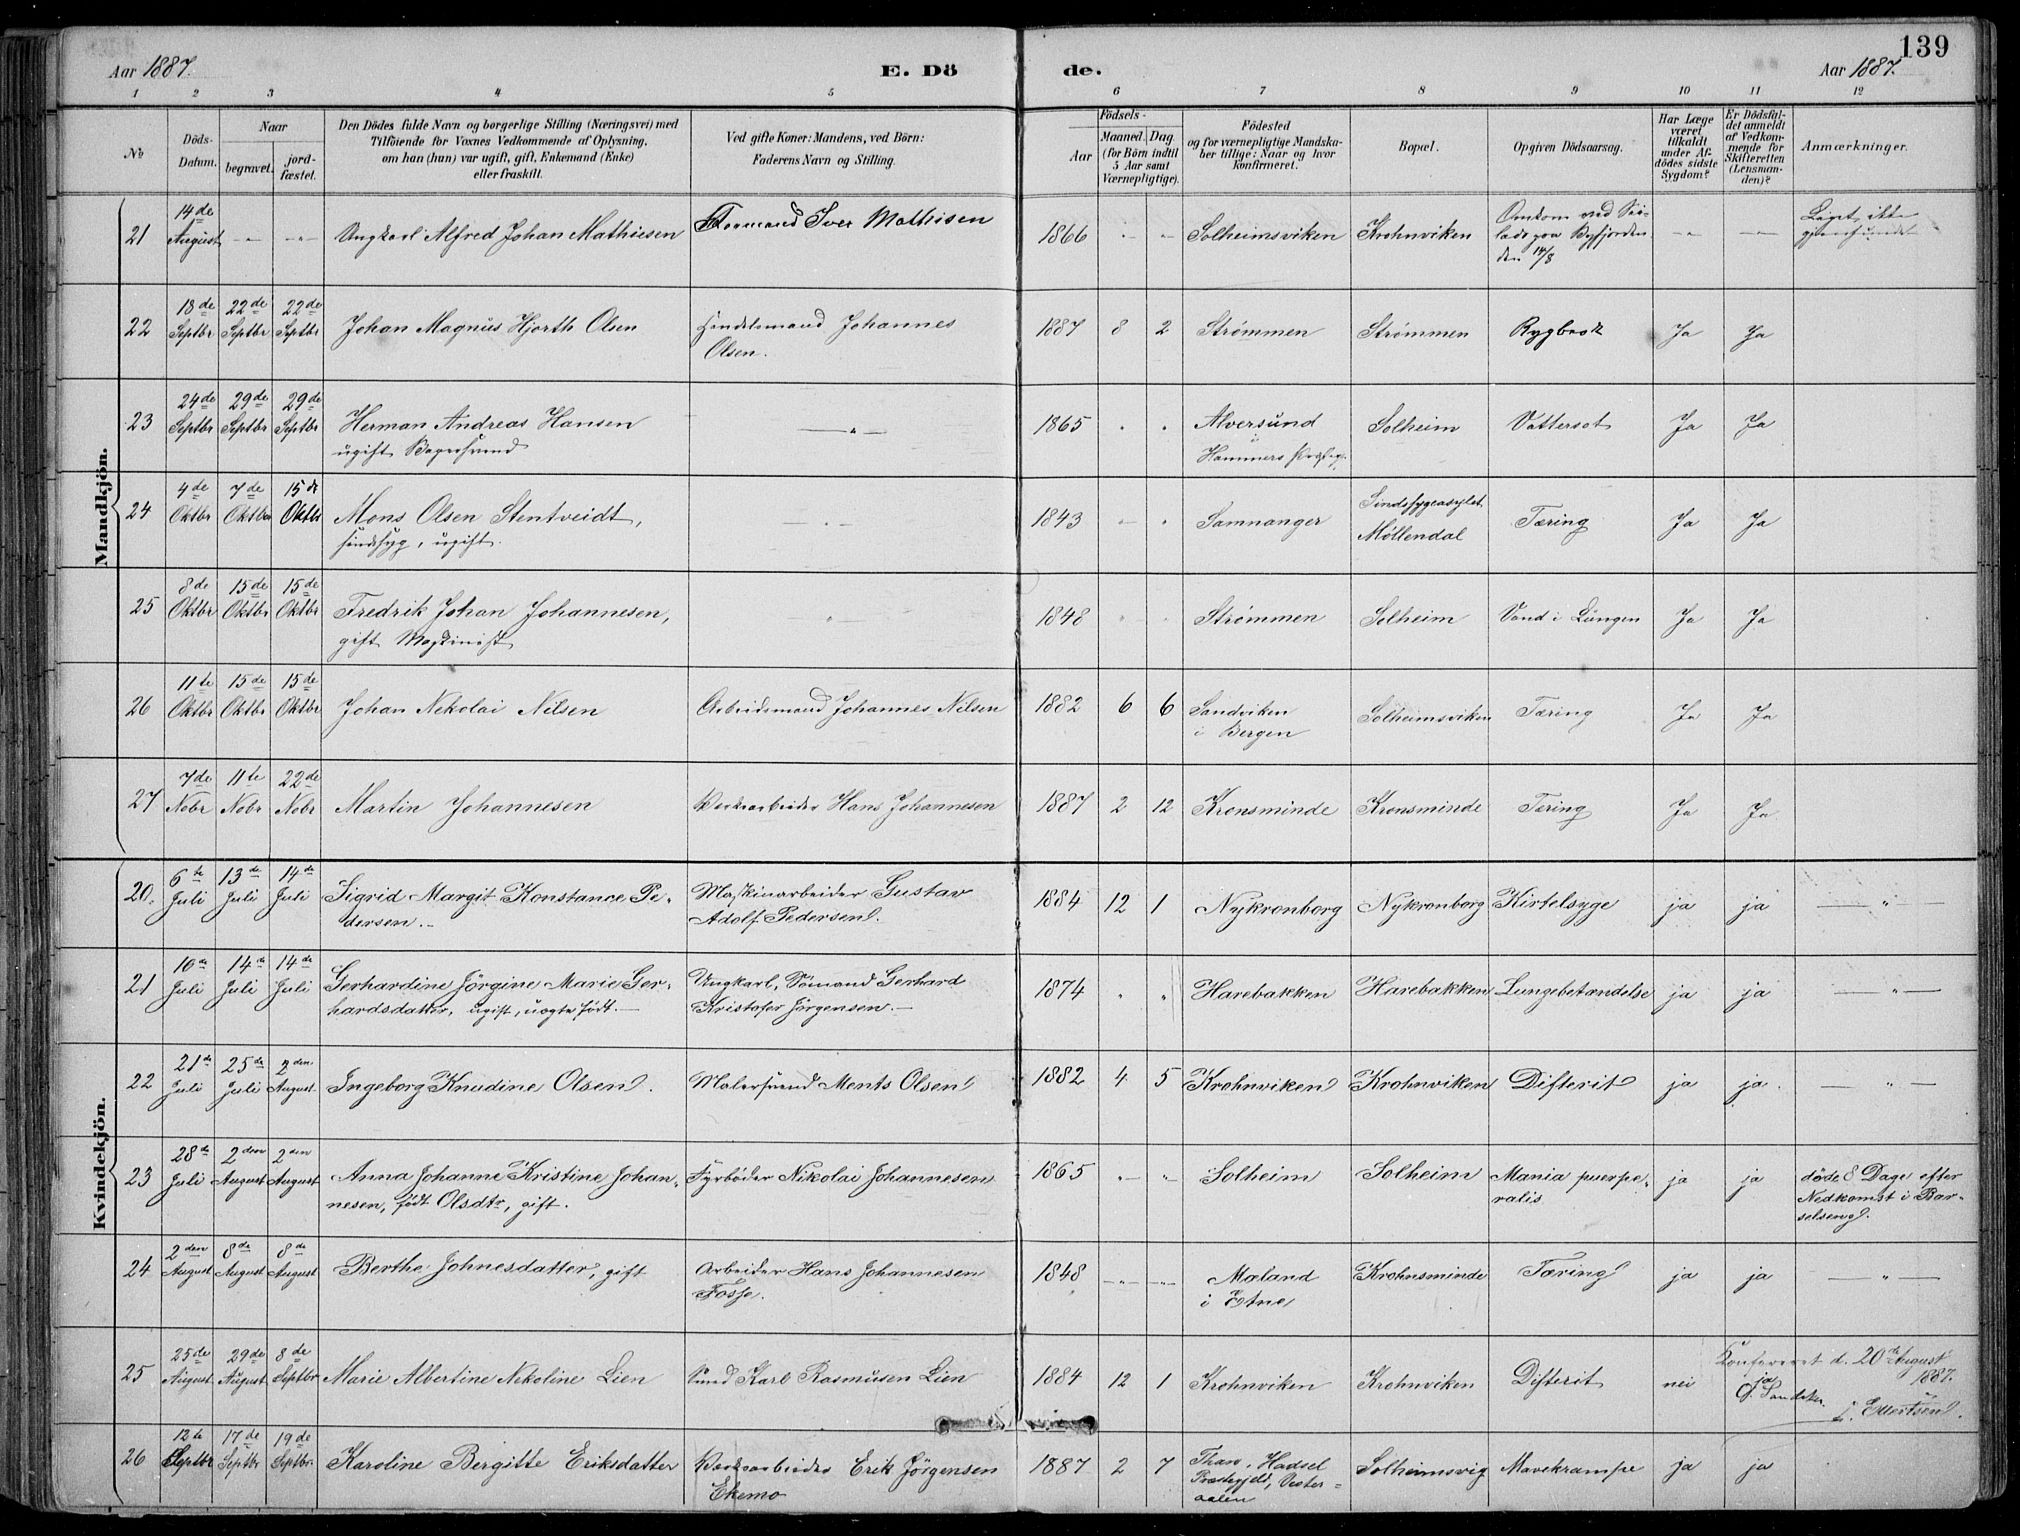 139
Aar 1887. E. Dö de. Aar 1887.
1 2 3 4 5 6 7 8 9 10 11 12
No Döds-Datum. Naar begravet. jordfæstet. Den Dödes fulde Navn og borgerlige Stilling (Næringsvei) med Tilföiende for Voxnes Vedkommende af Oplysning, om han (hun) var ugift, gift, Enkemand (Enke) eller fraskilt. Ved gifte Koner: Mandens, ved Börn: Faderens Navn og Stilling. Födsels- Aar Maaned. Dag (for Börn indtil 5 Aar samt Værnepligtige). Födested og for værnepligtige Mandskaber tillige: Naar og hvor konfirmeret. Bopæl. Opgiven Dödsaarsag. Har Læge været tilkaldt under Afdödes sidste Sygdom? Er Dödsfaldet anmeldt af Vedkommende for Skifteretten (Lensmanden)? Anmærkninger.
Mandkjön.
21 14de August -"- -"- Ungkarl Alfred Johan Mathiesen Formand Iver Mathisen 1866 " " Solheimsviken Krohnviken Omkom ved Seilads paa Byfjorden den 14/8 -"- -"- Liget ikke gjenfundet
22 18de Septbr 22de Septbr 22de Septbr Johan Magnus Hjorth Olsen Handelsmand Johannes Olsen. 1887 8 2 Strømmen Strømmen Rygbrok Ja Ja
23 24de Septbr 29de Septbr 29de Septbr Herman Andreas Hansen ugift Bagersvend -"- 1865 " " Alversund i Hammers Prstgj. Solheim Vattersot Ja Ja
24 4de Oktbr 7de Oktbr 15de Oktbr Mons Olsen Stentveidt, sindssyg, ugift. -"- 1843 " " Samnanger Sindssygeasylet Møllendal Tæring Ja Ja
25 8de Oktbr 15de Oktbr 15de Oktbr Fredrik Johan Johannesen, gift Maskinist " 1848 " " Strømmen Solheim Vand i Lungen Ja Ja
26 11te Oktbr 15de Oktbr 15de Oktbr Johan Nikolai Nilsen Arbeidsmand Johannes Nilsen 1882 6 6 Sandviken i Bergen Solheimsviken Tæring Ja Ja
27 7de Nobr 11te Nobr 22de Nobr Martin Johannesen Værksarbeider Hans Johannesen 1887 2 12 Kronsminde Kronsminde Tæring Ja Ja
Kvindekjön.
20. 6te Juli 13de Juli 14de Juli Sigrid Margit Konstance Pedersen.- Maskinarbeider Gustav Adolf Pedersen. 1884 12 1 Nykronborg Nykronborg Kirtelsyge ja ja -"-
21 10de Juli 14de Juli 14de Juli Gerhardine Jörgine Marie Gerhardsdatter, ugift, uægte født.- Ungkarl, Sømand Gerhard Kristofer Jørgensen.- 1874 " " Harebakken Harebakken Lungebetændelse ja ja -"-
22 21de Juli 25de Juli 2den August Ingeborg Knudine Olsen. Malersvend Ments Olsen 1882 4 5 Krohnviken Krohnviken Difterit ja ja. -"-
23 28de Juli 2den August 2den August Anna Johanne Kristine Johannesen, født Olsdtr, gift. Fyrbøder Nikolai Johannesen 1865 -"- Solheim Solheim Mania puerperalis ja ja døde 8 Dage efter Nedkomst i Barselseng.
24 2den August 8de August 8de August Berthe Johnesdatter, gift Arbeider Hans Johannesen Fosse. 1848 -"- -"- Mæland i Etne Krohnsminde Tæring ja ja -"-
25 25de August 29de August 8de Septbr Marie Albertine Nikoline Lien Smed Karl Rasmusen Lien 1884 12 1 Krohnviken Krohnviken Difterit nei ja Konfereret d. 20 August 1887. L. Ellertsen.
26 12te Septbr 17de Septbr 19de Septbr. Karoline Bergitte Eriksdatter Værksarbeider Erik Jørgensen Ekemo 1887 2 7 Hadsel Præstegjeld, Vesteraalen Solheimsvig Mavekrampe ja ja